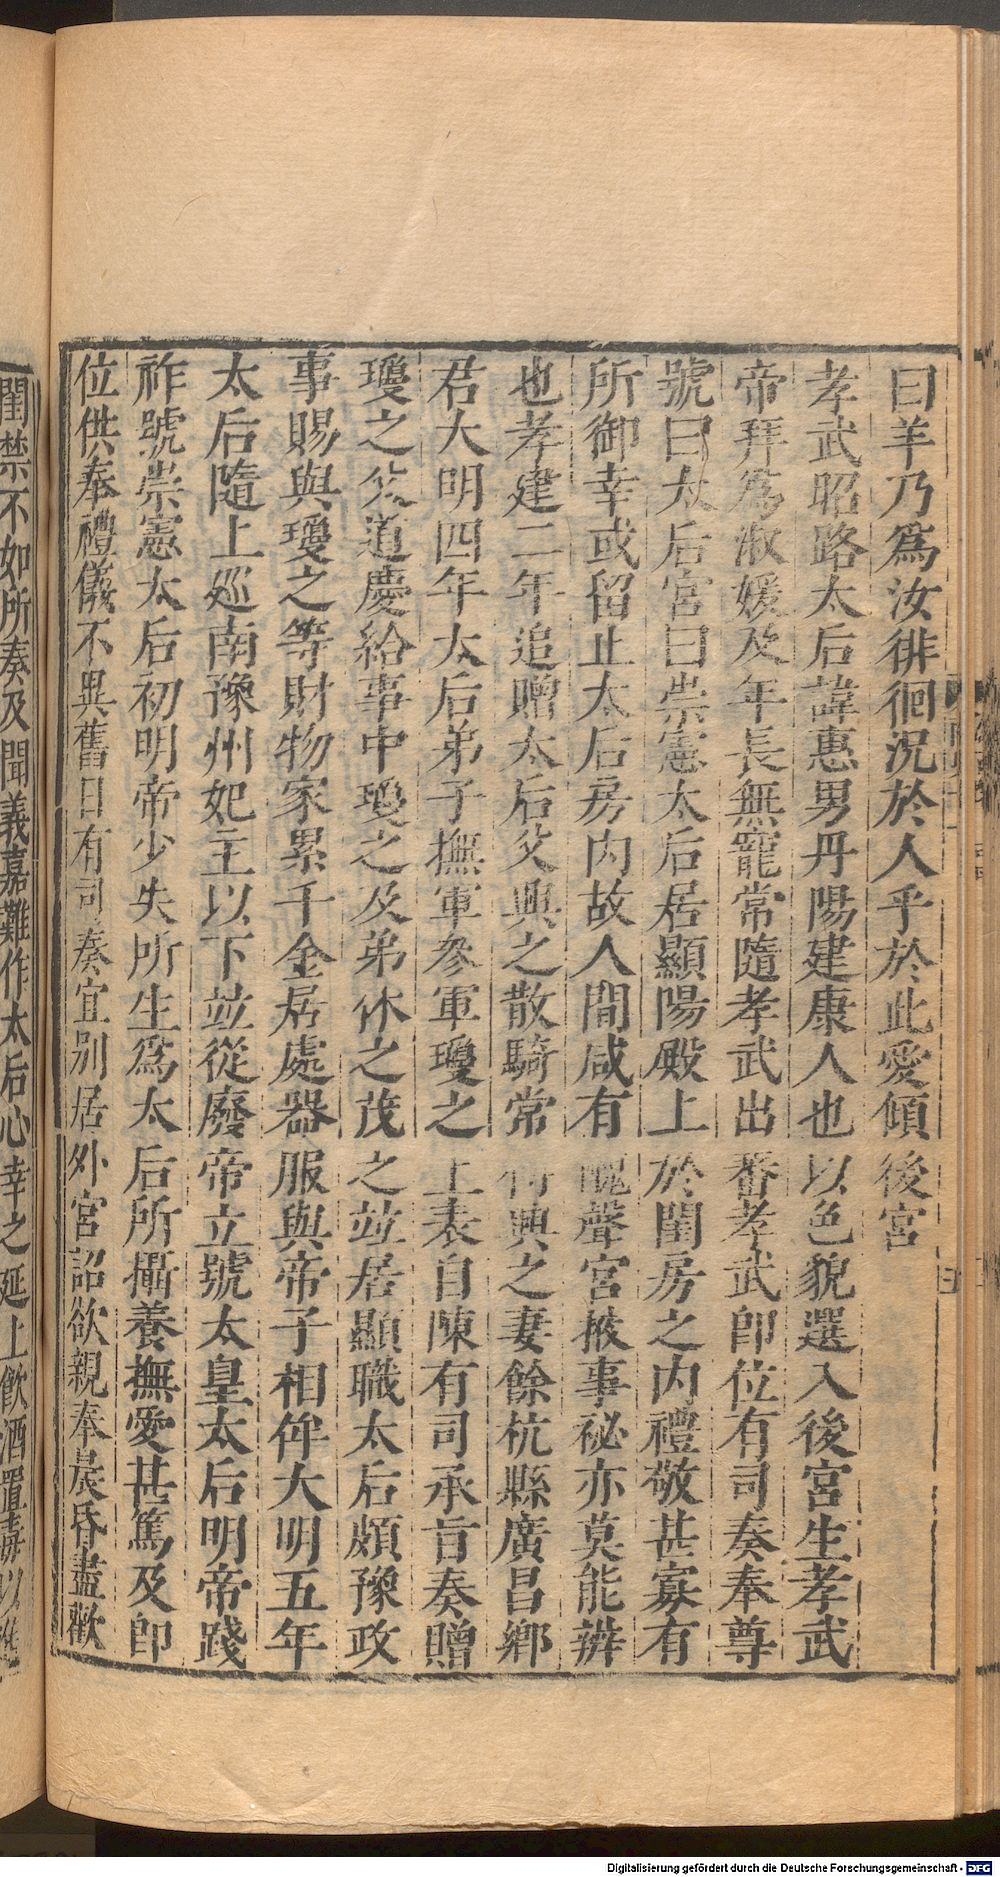 曰羊乃爲汝徘徊況於人乎於此愛傾後宮
孝武昭路太后諱惠男丹陽建康人也以色貌選入後宮生孝武
帝拜爲淑媛及年長無寵常隨孝武出番孝武卽位有司奏奉尊
號曰太后宮曰崇憲太后居顯陽殿上於閨房之内禮敬甚寡有
所御幸或留止太后房内故人間咸有醜聲宮掖事祕亦莫能辨
也孝建二年追贈太后父興之散騎常侍興之妻餘杭縣廣昌鄉
君大明四年太后弟子撫軍參軍瓊之上表自陳有司承旨奏贈
瓊之父道慶給事中瓊之及弟休之茂之竝居顯職太后頗豫政
事賜與瓊之等財物家累千金居處器服與帝子相侔大明五年
太后隨上巡南豫州妃主以下竝從廢帝立號太皇太后明帝踐
祚號崇憲太后初明帝少失所生爲太后所攝養撫愛甚篤及卽
位供奉禮儀不異舊日有司奏宜別居外宮詔欲親奉晨昏盡歡
閨禁不如所奏及聞義嘉難作太后心幸之延上飲酒置毒以進
Digitalisierung gefördert durch die Deutsche Forschungsgemeinschaft - DFG